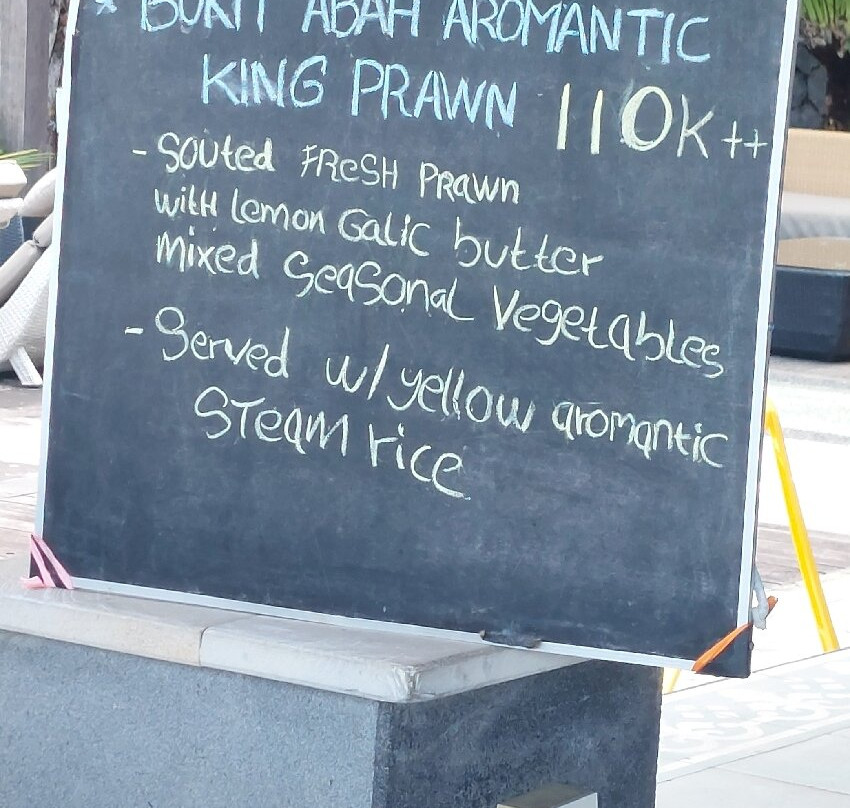 * BUKIT ABAH AROMANTIC
KING PRAWN 110K++
- Souted FReSH PRawn
witH lemon Galic butter
mixed Seasonal Vegetables
- Served w/yellow aromantic
STeam rice